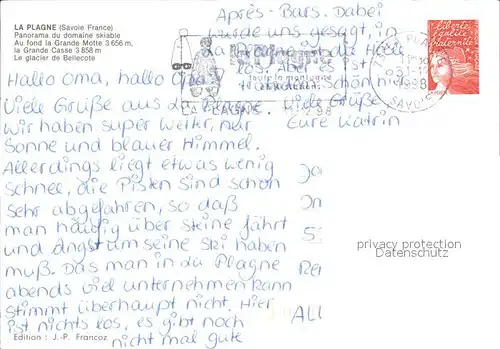 LA PLAGNE (Savoie France)
Panorama du domaine skiable
Au fond la Grande Motte 3 656 m,
la Grande Casse 3 858 m
Le glacier de Bellecote
Hallo Oma, hallo
Viele Grüße aus La Plagne.
Wir haben super Wetter, nur
Sonne und blauer Himmel.
Allerdings liegt etwas wenig
Schnee, die Pisten sind schon
sehr abgefahren, so daß
man häufig über Steine fährt
und Angst um seine Ski haben
muß. Das man in La Plagne
abends viel unternehmen kann
stimmt überhaupt nicht. Hier
ist nichts los, es gibt noch
nicht mal gute
Après-Bars. Dabei
wurde uns gesagt, in
La Plagne ist die Hölle
los. Aber es ist
schön hier
Viele Grüße
Eure Katrin
toute la montagne
LA PLAGNE
Liberté
égalité
fraternité
1998
SAVOIE
privacy protection
Datenschutz
Edition : J.-P. Francoz